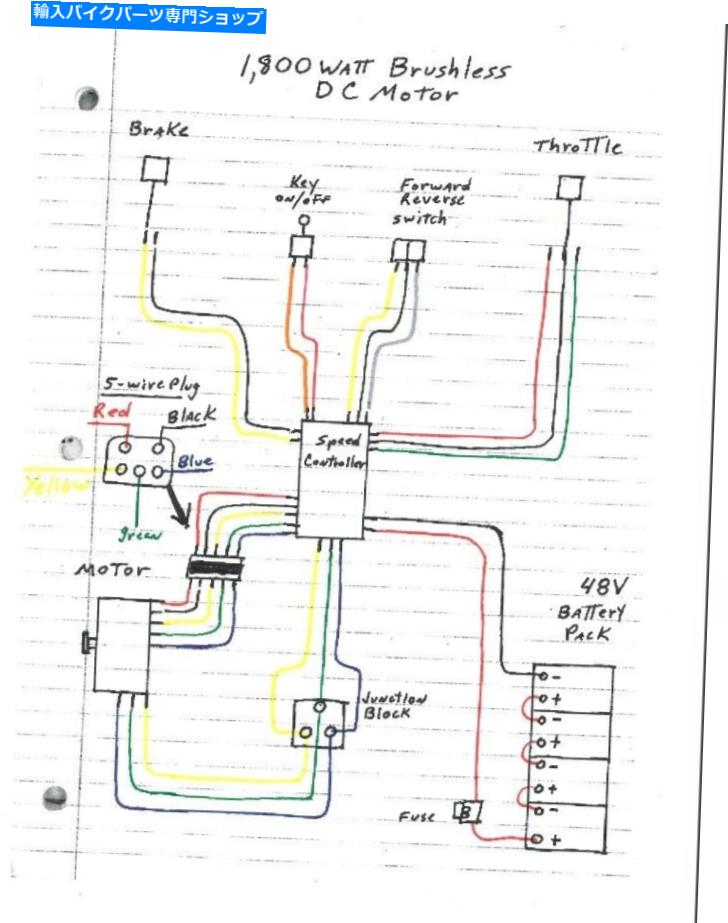 輸入バイクパーツ専門ショップ
1,800 WATT Brushless
DC Motor
Brake
Throttle
Key
ON/OFF
Forward
Reverse
Switch
5-wire Plug
Red
BLACK
Yellow
Blue
green
Speed
Controller
MOTOR
48V
BATTery
PACK
Junction
Block
Fuse
-
+
-
+
-
+
-
+